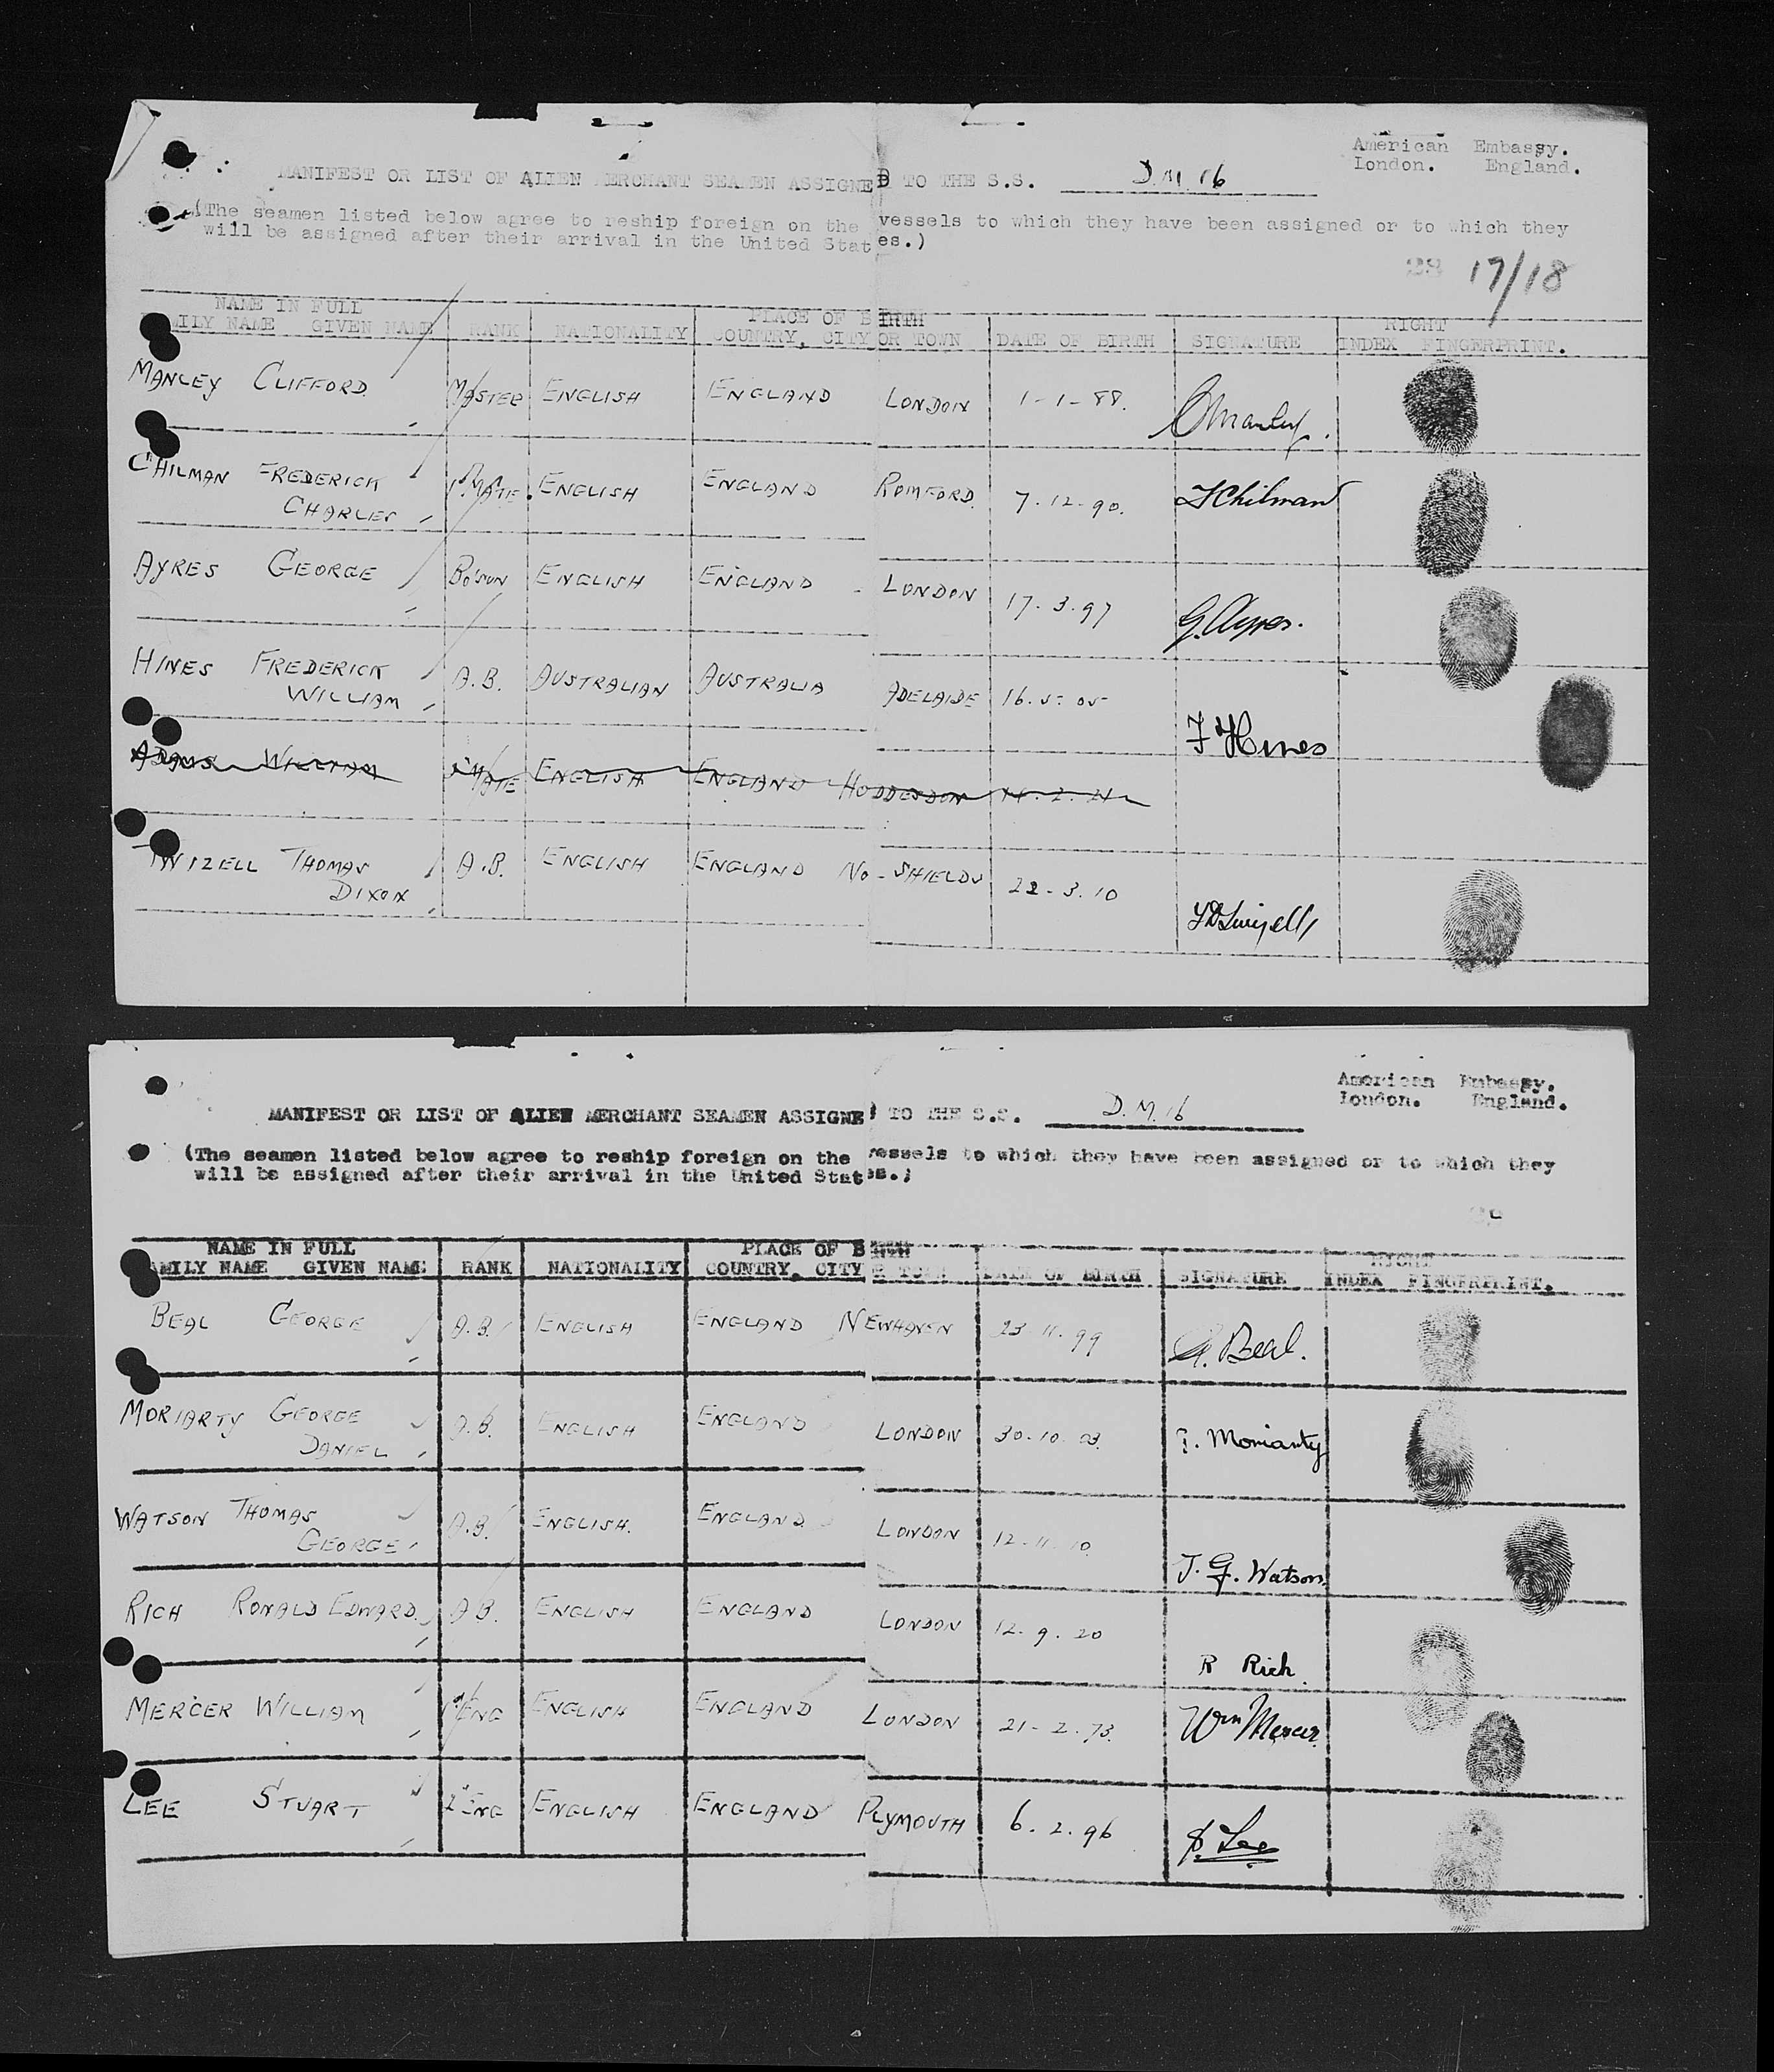 American Embassy.
London. England.
MANIFEST OR LIST OF ALIEN MERCHANT SEAMEN ASSIGNED TO THE S.S. D.M. 16
(The seamen listed below agree to reship foreign on the vessels to which they have been assigned or to which they
will be assigned after their arrival in the United States.)
28 17/18
NAME IN FULL PLACE OF BIRTH RIGHT
MILY NAME GIVEN NAME RANK NATIONALITY COUNTRY, CITY OR TOWN DATE OF BIRTH SIGNATURE INDEX FINGERPRINT.
MANLEY CLIFFORD. MASTER ENGLISH ENGLAND LONDON 1-1-88. CManley.
CHILMAN FREDERICK 1st MATE. ENGLISH ENGLAND ROMFORD. 7.12.90. FChilman
CHARLES
AYRES GEORGE BO'SUN ENGLISH ENGLAND LONDON 17.3.97 G.Ayres.
HINES FREDERICK A.B. AUSTRALIAN AUSTRALIA ADELAIDE 16.5.05 F Hines
WILLIAM
ADAMS WILLIAM MATE ENGLISH ENGLAND HODDESDON
TWIZELL THOMAS A.B. ENGLISH ENGLAND No-SHIELDS 22-3.10 TDTwizell
DIXON
American Embassy.
London. England.
MANIFEST OR LIST OF ALIEN MERCHANT SEAMEN ASSIGNE TO THE S.S. D.M. 16
(The seamen listed below agree to reship foreign on the vessels to which they have been assigned or to which they
will be assigned after their arrival in the United States.)
NAME IN FULL PLACE OF BIRTH RIGHT
AMILY NAME GIVEN NAME RANK NATIONALITY COUNTRY, CITY R TOWN DATE OF BIRTH SIGNATURE INDEX FINGERPRINT.
BEAL GEORGE A.B. ENGLISH ENGLAND NEWHAVEN 23.11.99 G. Beal.
MORIARTY GEORGE A.B. ENGLISH ENGLAND LONDON 30.10.03. G. Moriarty
DANIEL
WATSON THOMAS A.B. ENGLISH. ENGLAND LONDON 12.11.10. T. G. Watson.
GEORGE
RICH RONALD EDWARD. A.B. ENGLISH ENGLAND LONDON 12.9.20 R Rich.
MERCER WILLIAM 1st ENG ENGLISH ENGLAND LONDON 21-2.73. Wm Mercer.
LEE STUART 2" ENG ENGLISH ENGLAND PLYMOUTH 6.2.96 S. Lee